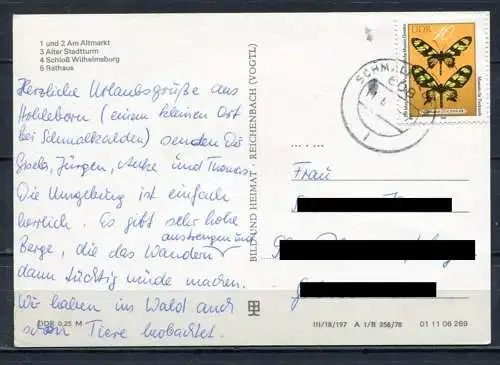 1 und 2 Am Altmarkt
3 Alter Stadtturm
4 Schloß Wilhelmsburg
5 Rathaus
Herzliche Urlaubsgrüße aus
Hohleborn (einem kleinen Ort
bei Schmalkalden) senden Dir
Gisela, Jürgen, Antke und Thomas.
Die Umgebung ist einfach
herrlich. Es gibt sehr hohe
Berge, die das Wandern anstrengen und
dann tüchtig müde machen.
Wir haben im Wald auch
schon Tiere beobachtet.
DDR 0,25 M
BILD UND HEIMAT · REICHENBACH (VOGTL)
DDR 10
Frau
III/18/197 A 1/B 256/78 01 11 06 269